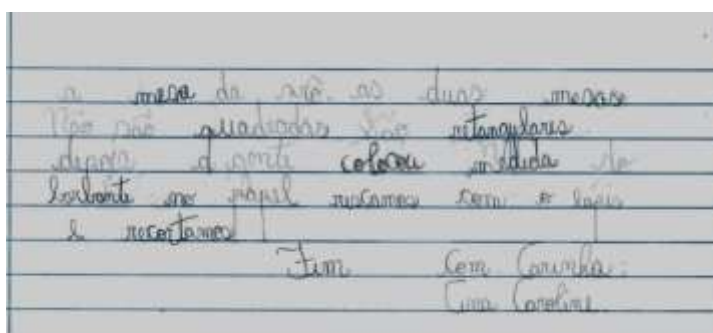 a mesa da avó. as duas mesas
Não são quadradas são retangulares
depois a gente colocou medida do
barbante no papel riscamos com o lápis
e recortamos
Fim Com Carinho:
Caroline